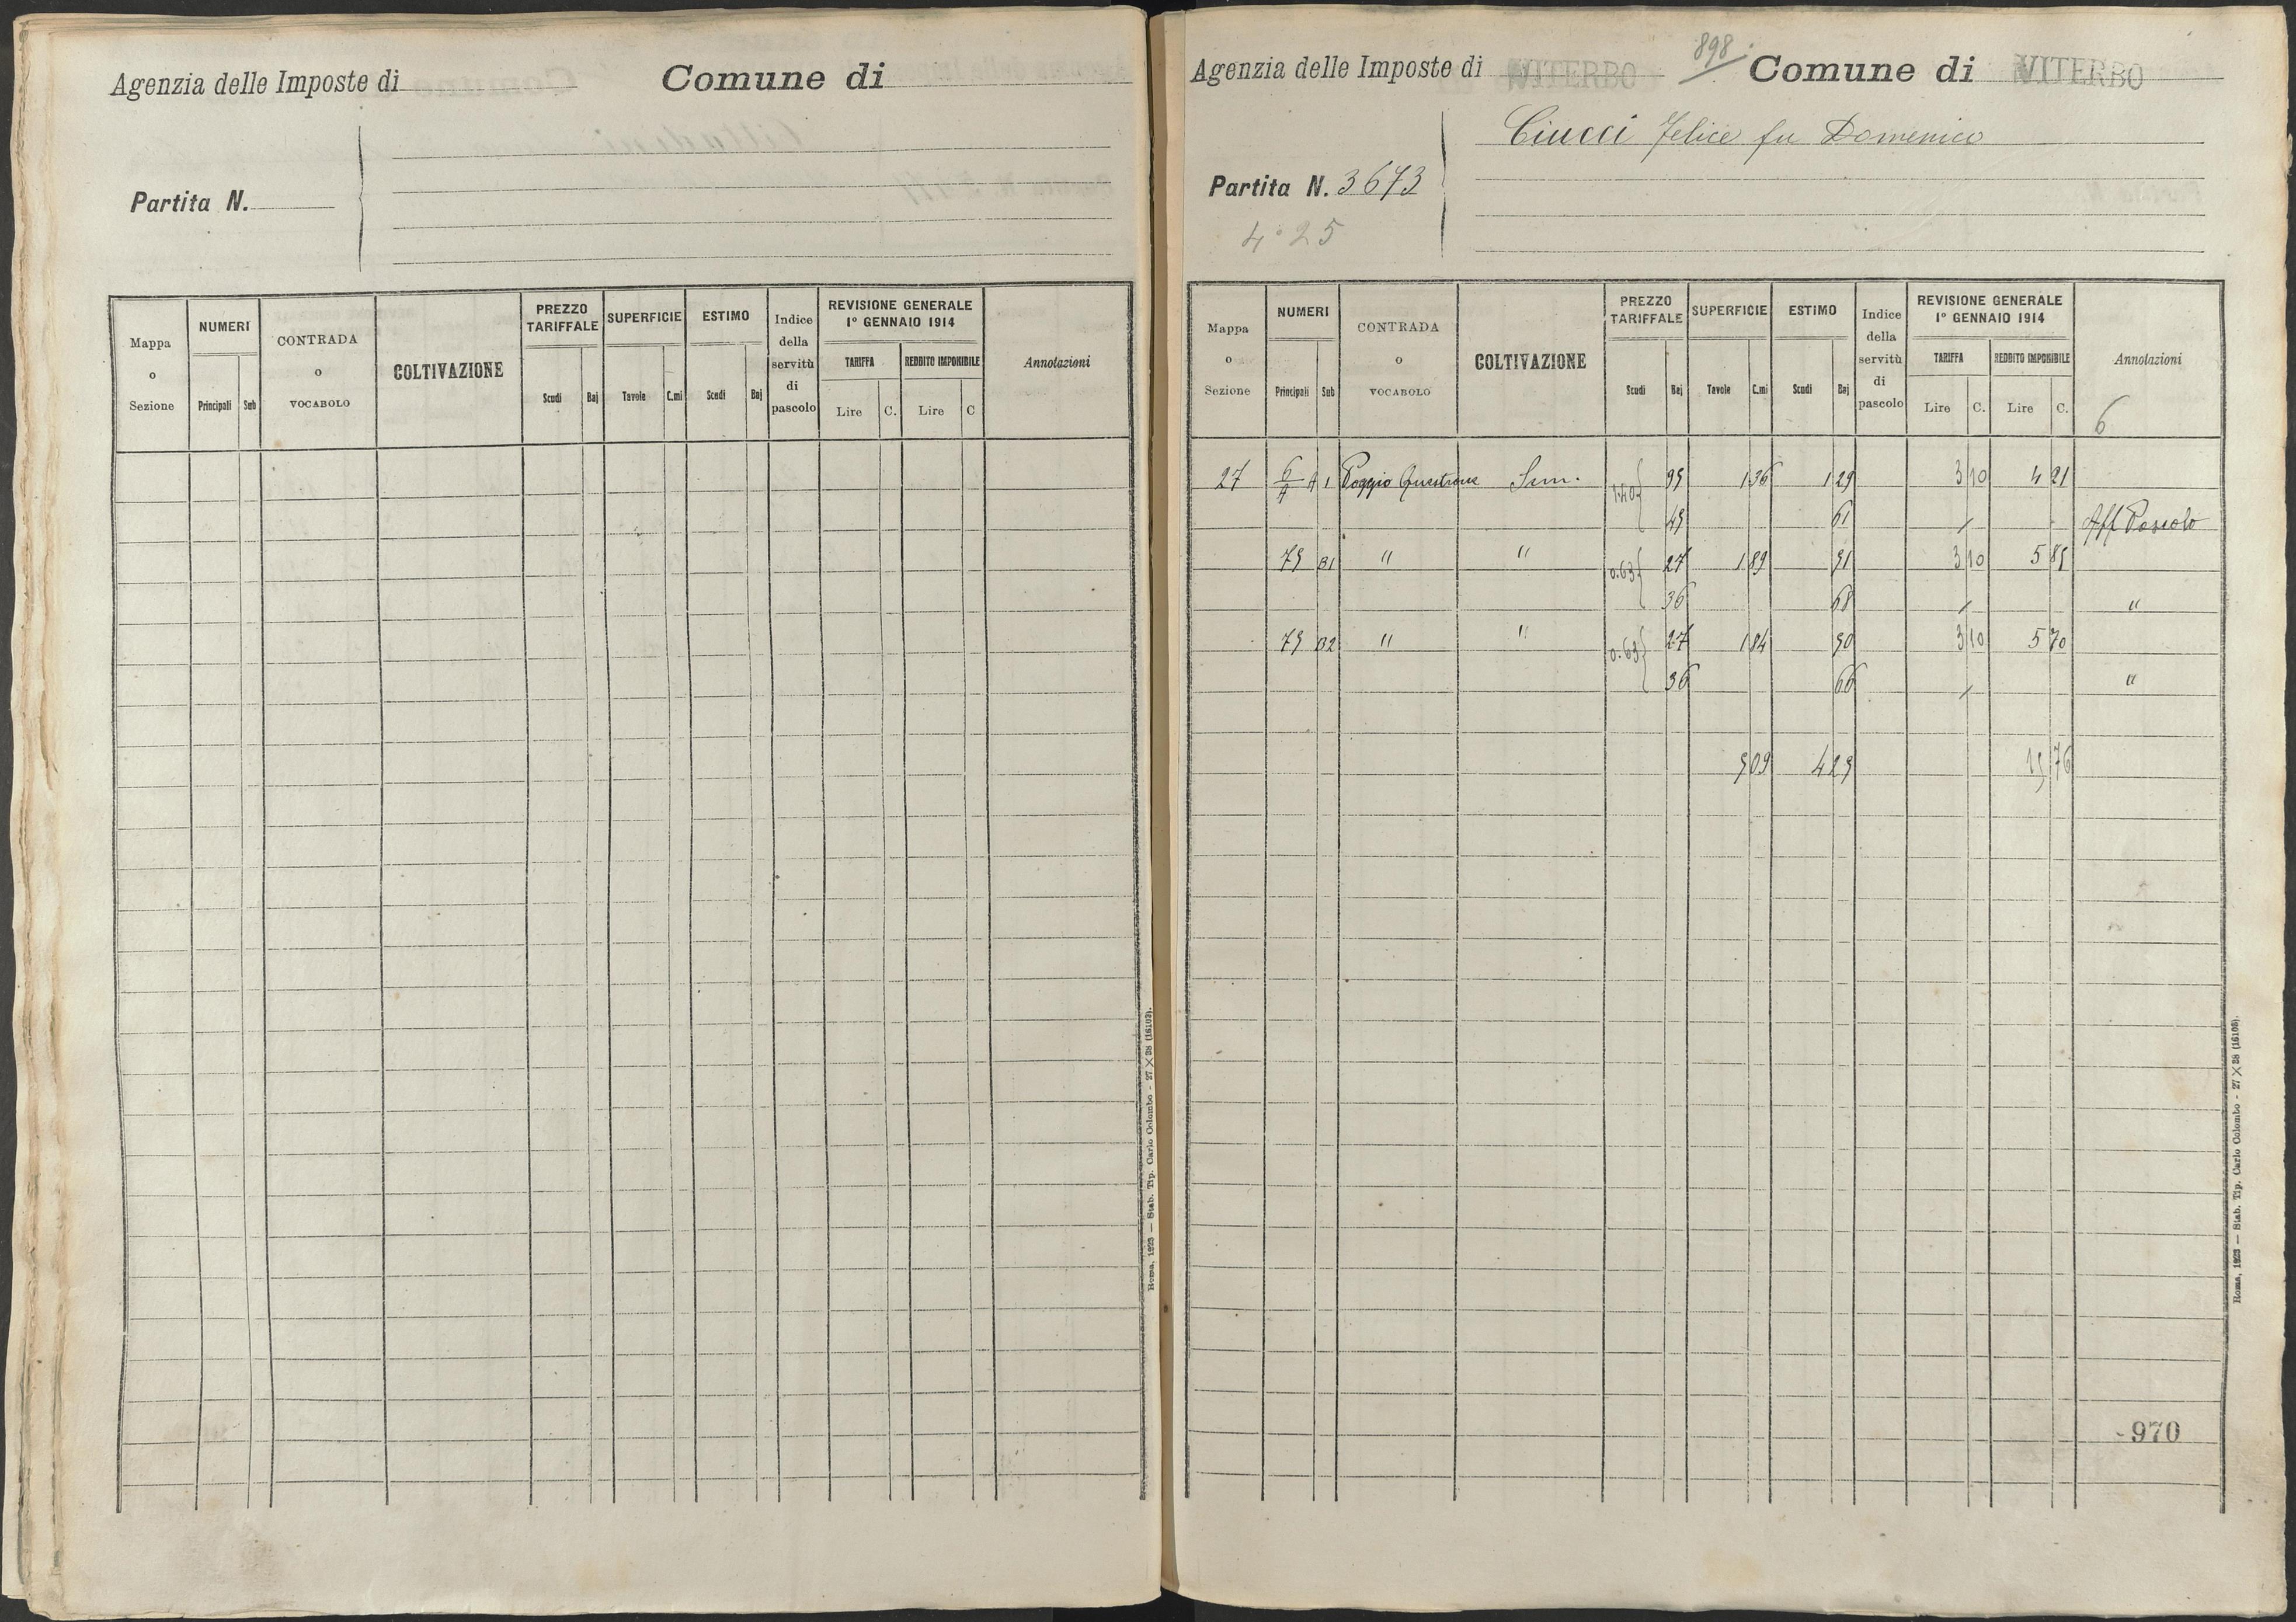 Agenzia delle Imposte di
Comune di
Partita N.
Mappa o Sezione
NUMERI
Principali Sub
CONTRADA o VOCABOLO
COLTIVAZIONE
PREZZO TARIFFALE
Scudi Baj
SUPERFICIE
Tavole C.mi
ESTIMO
Scudi Baj
Indice della servitù di pascolo
REVISIONE GENERALE
1° GENNAIO 1914
TARIFFA REDDITO IMPONIBILE
Lire C. Lire C
Annotazioni
Roma, 1923 — Stab. Tip. Carlo Colombo - 27 X 38 (16103).
898
Agenzia delle Imposte di VITERBO Comune di VITERBO
Ciucci Felice fu Domenico
Partita N. 3673
4 25
Mappa o Sezione
NUMERI
Principali Sub
CONTRADA o VOCABOLO
COLTIVAZIONE
PREZZO TARIFFALE
Scudi Baj
SUPERFICIE
Tavole C.mi
ESTIMO
Scudi Baj
Indice della servitù di pascolo
REVISIONE GENERALE
1° GENNAIO 1914
TARIFFA REDDITO IMPONIBILE
Lire C. Lire C.
Annotazioni
6
27 6/A A 1 Poggio Sem. 1.40 95 1 36 1 29 3 10 4 21
45 61 Aff Pascolo
75 B1 " " 0.63 27 1 89 51 3 10 5 85
36 68 "
75 B2 " " 0.63 27 1 84 50 3 10 5 70
36 66 "
5 09 4 25 15 76
970
Roma, 1923 — Stab. Tip. Carlo Colombo - 27 X 38 (16103).